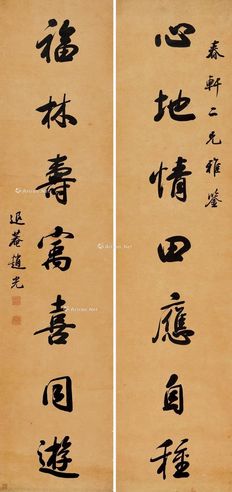 春軒二兄雅鑒
心地情田應自種
福林壽寓喜同遊
退菴趙光